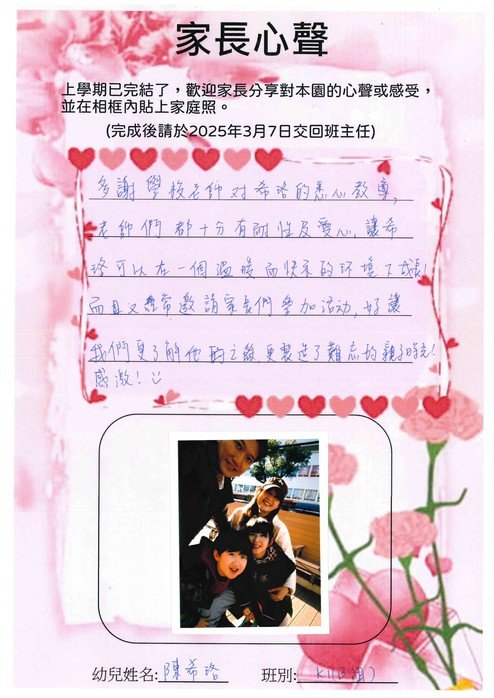 家長心聲
上學期已完結了，歡迎家長分享對本園的心聲或感受，
並在相框內貼上家庭照。
(完成後請於2025年3月7日交回班主任)
多謝學校老師对希珞的悉心教導，
老師們都十分有耐性及愛心，讓希
珞可以在一個溫暖而快乐的环境下成長！
而且又經常邀請家長們參加活动，好讓
我們更了解他的之餘，更製造了難忘的親子時光！
感激！
幼兒姓名: 陳希珞
班別: K1(B組)